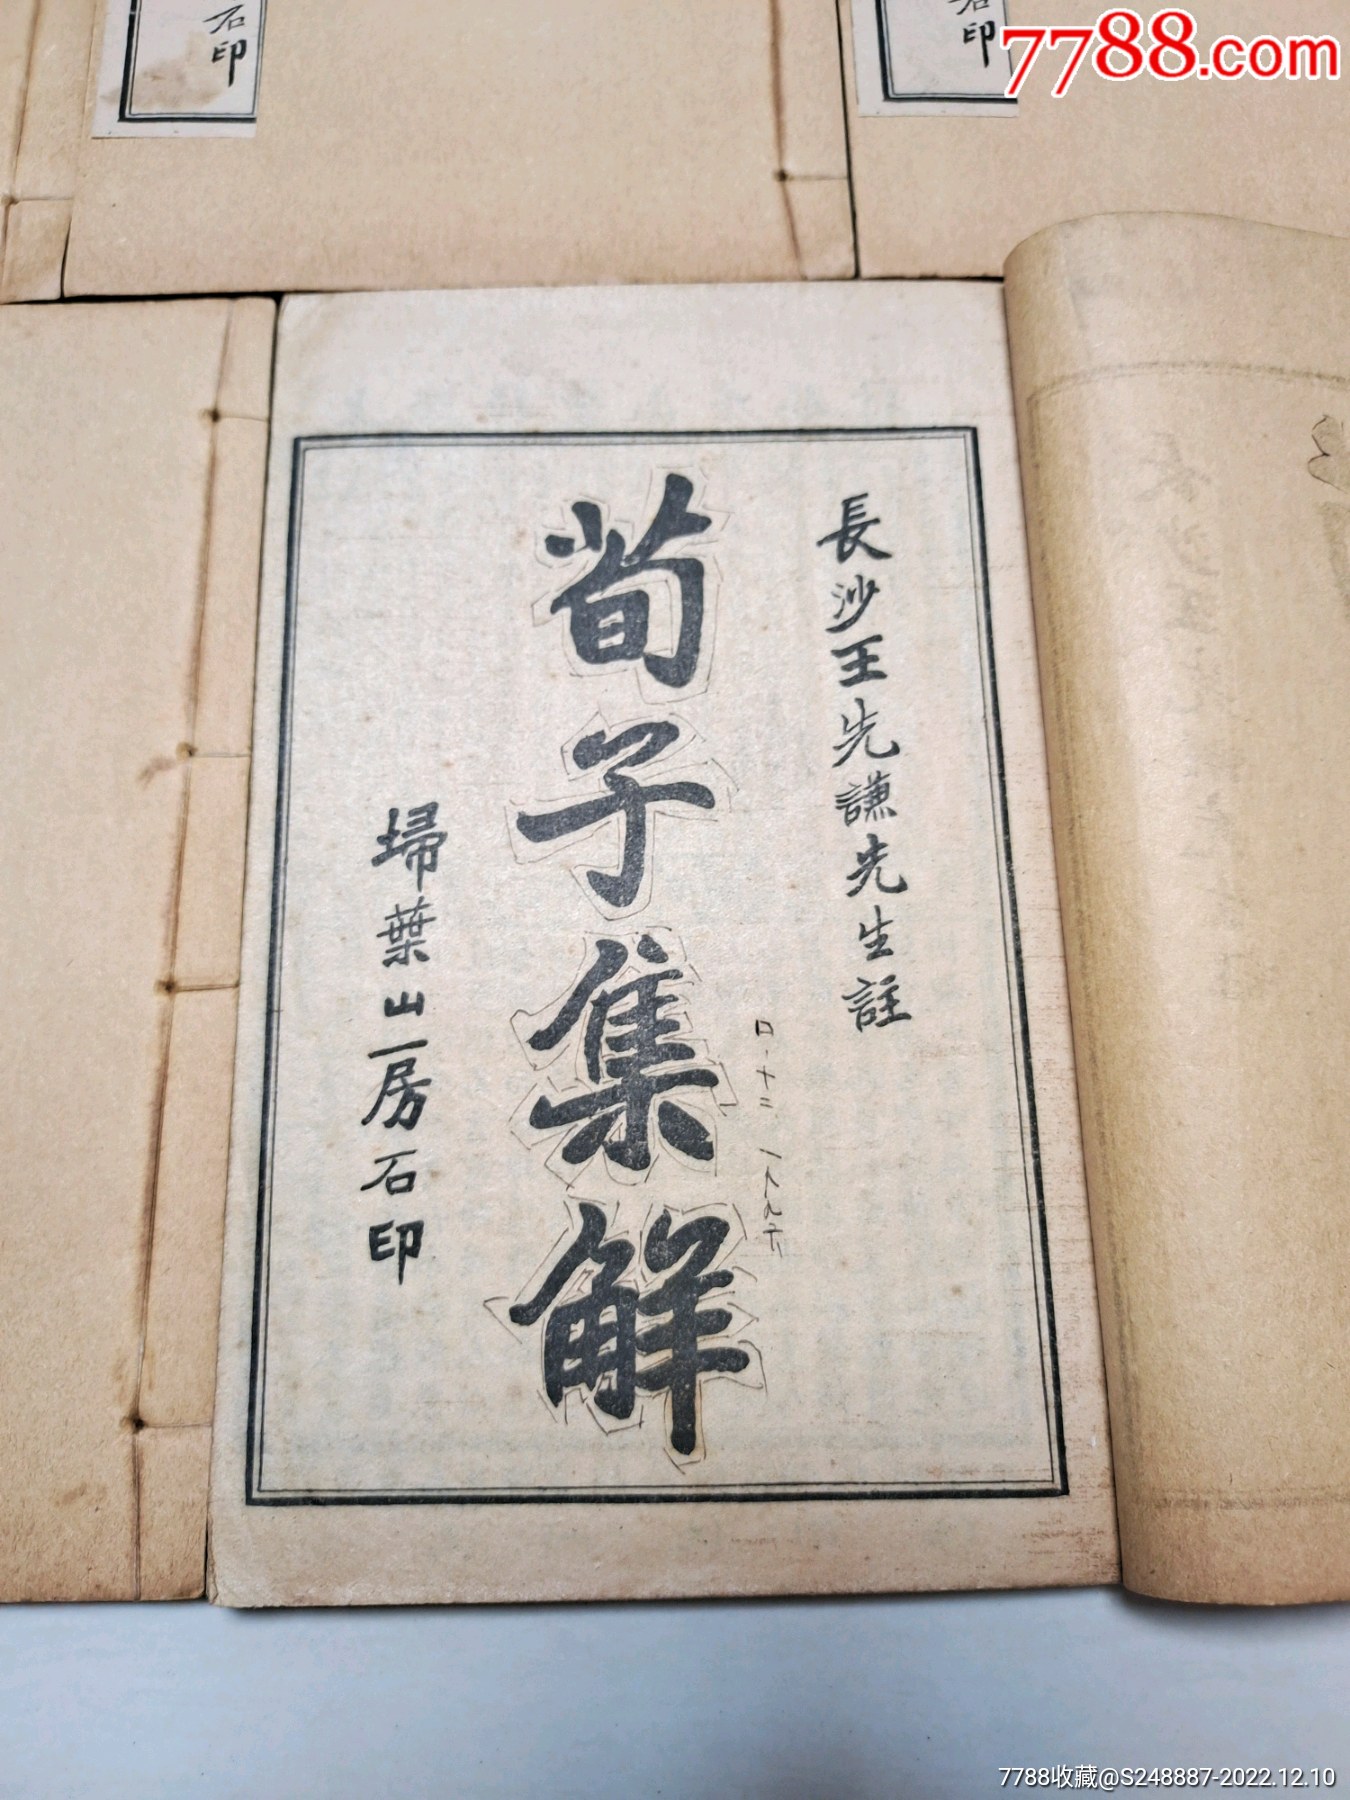 石印
石印
7788.com
長沙王先謙先生註
荀子集解
埽葉山房石印
7788收藏@S248887-2022.12.10